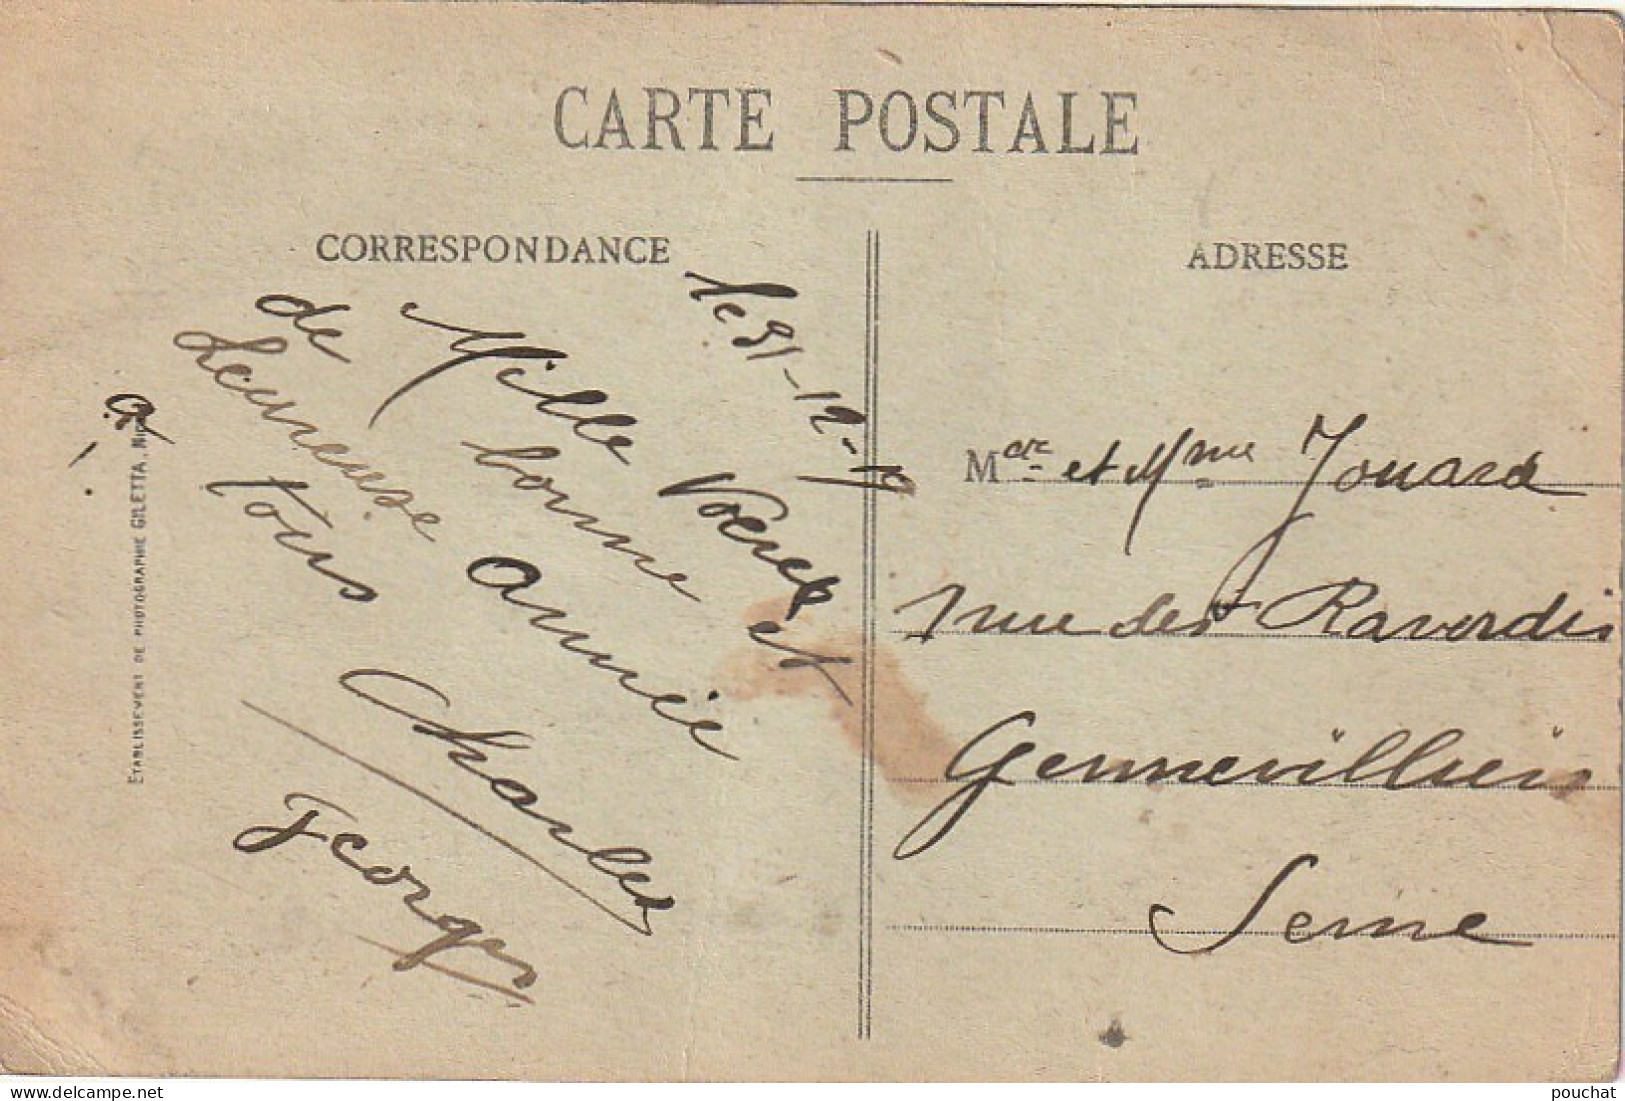 CARTE POSTALE
CORRESPONDANCE
ADRESSE
le 31-12-19
Mille Voeux et
bonne Année
de
Heureuse
à tous
Charles
Georges
Mdr et Mme Jouard
rue des Ravordis
Gennevilliers
Seine
ETABLISSEMENT DE PHOTOGRAPHIE GILETTA, Nice
delcampe.net
pouchat